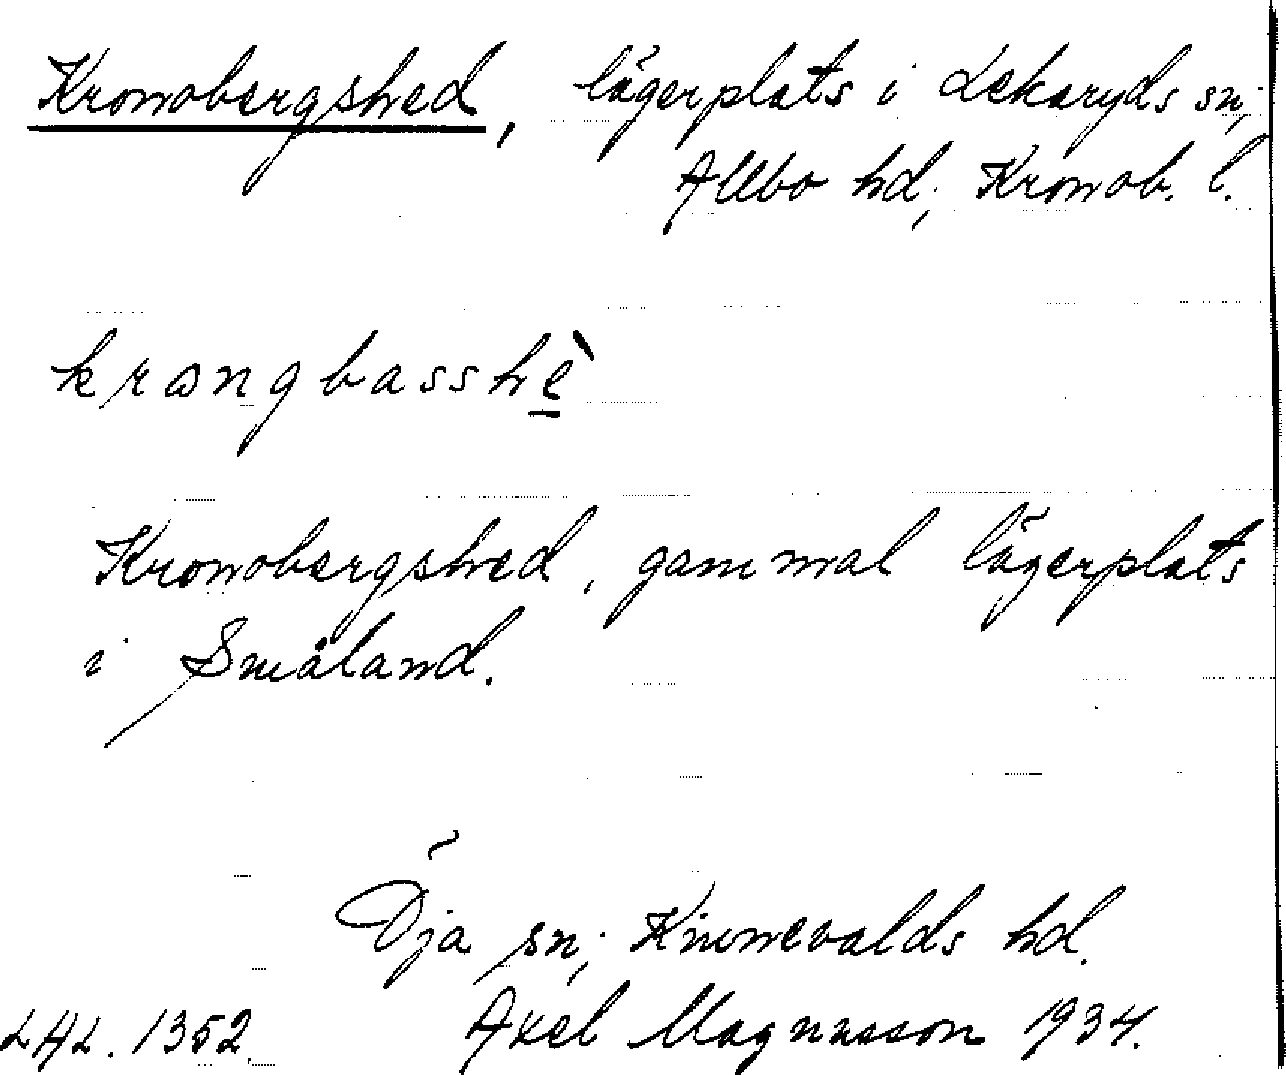 Kronobergshed, lägerplats i Lekaryds sn;
Allbo hd; Kronob. l.
krangbasshè
Kronobergshed, gammal lägerplats
i Småland.
Öja sn; Kinnevalds hd.
LAL. 1352. Axel Magnusson 1934.